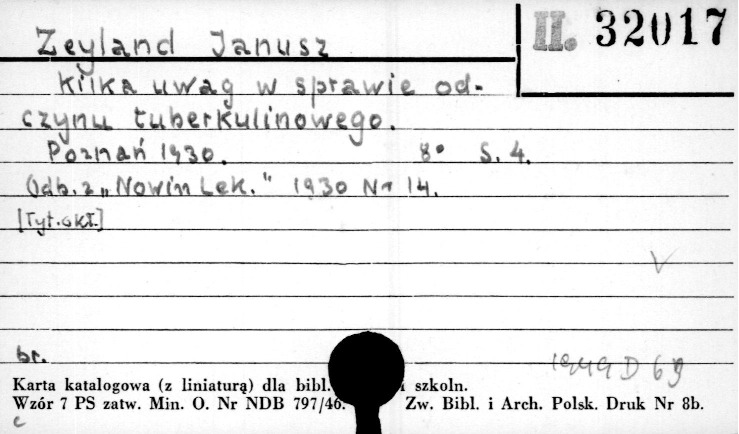 Zeyland Janusz
II. 32017
Kilka uwag w sprawie od-
czynu tuberkulinowego.
Poznań 1930. 8° S. 4.
Odb. z „Nowin Lek." 1930 Nr 14.
[Tyt. okł.]
V
br.
1949 D 69
Karta katalogowa (z liniaturą) dla bibl. i szkoln.
Wzór 7 PS zatw. Min. O. Nr NDB 797/46. Zw. Bibl. i Arch. Polsk. Druk Nr 8b.
c